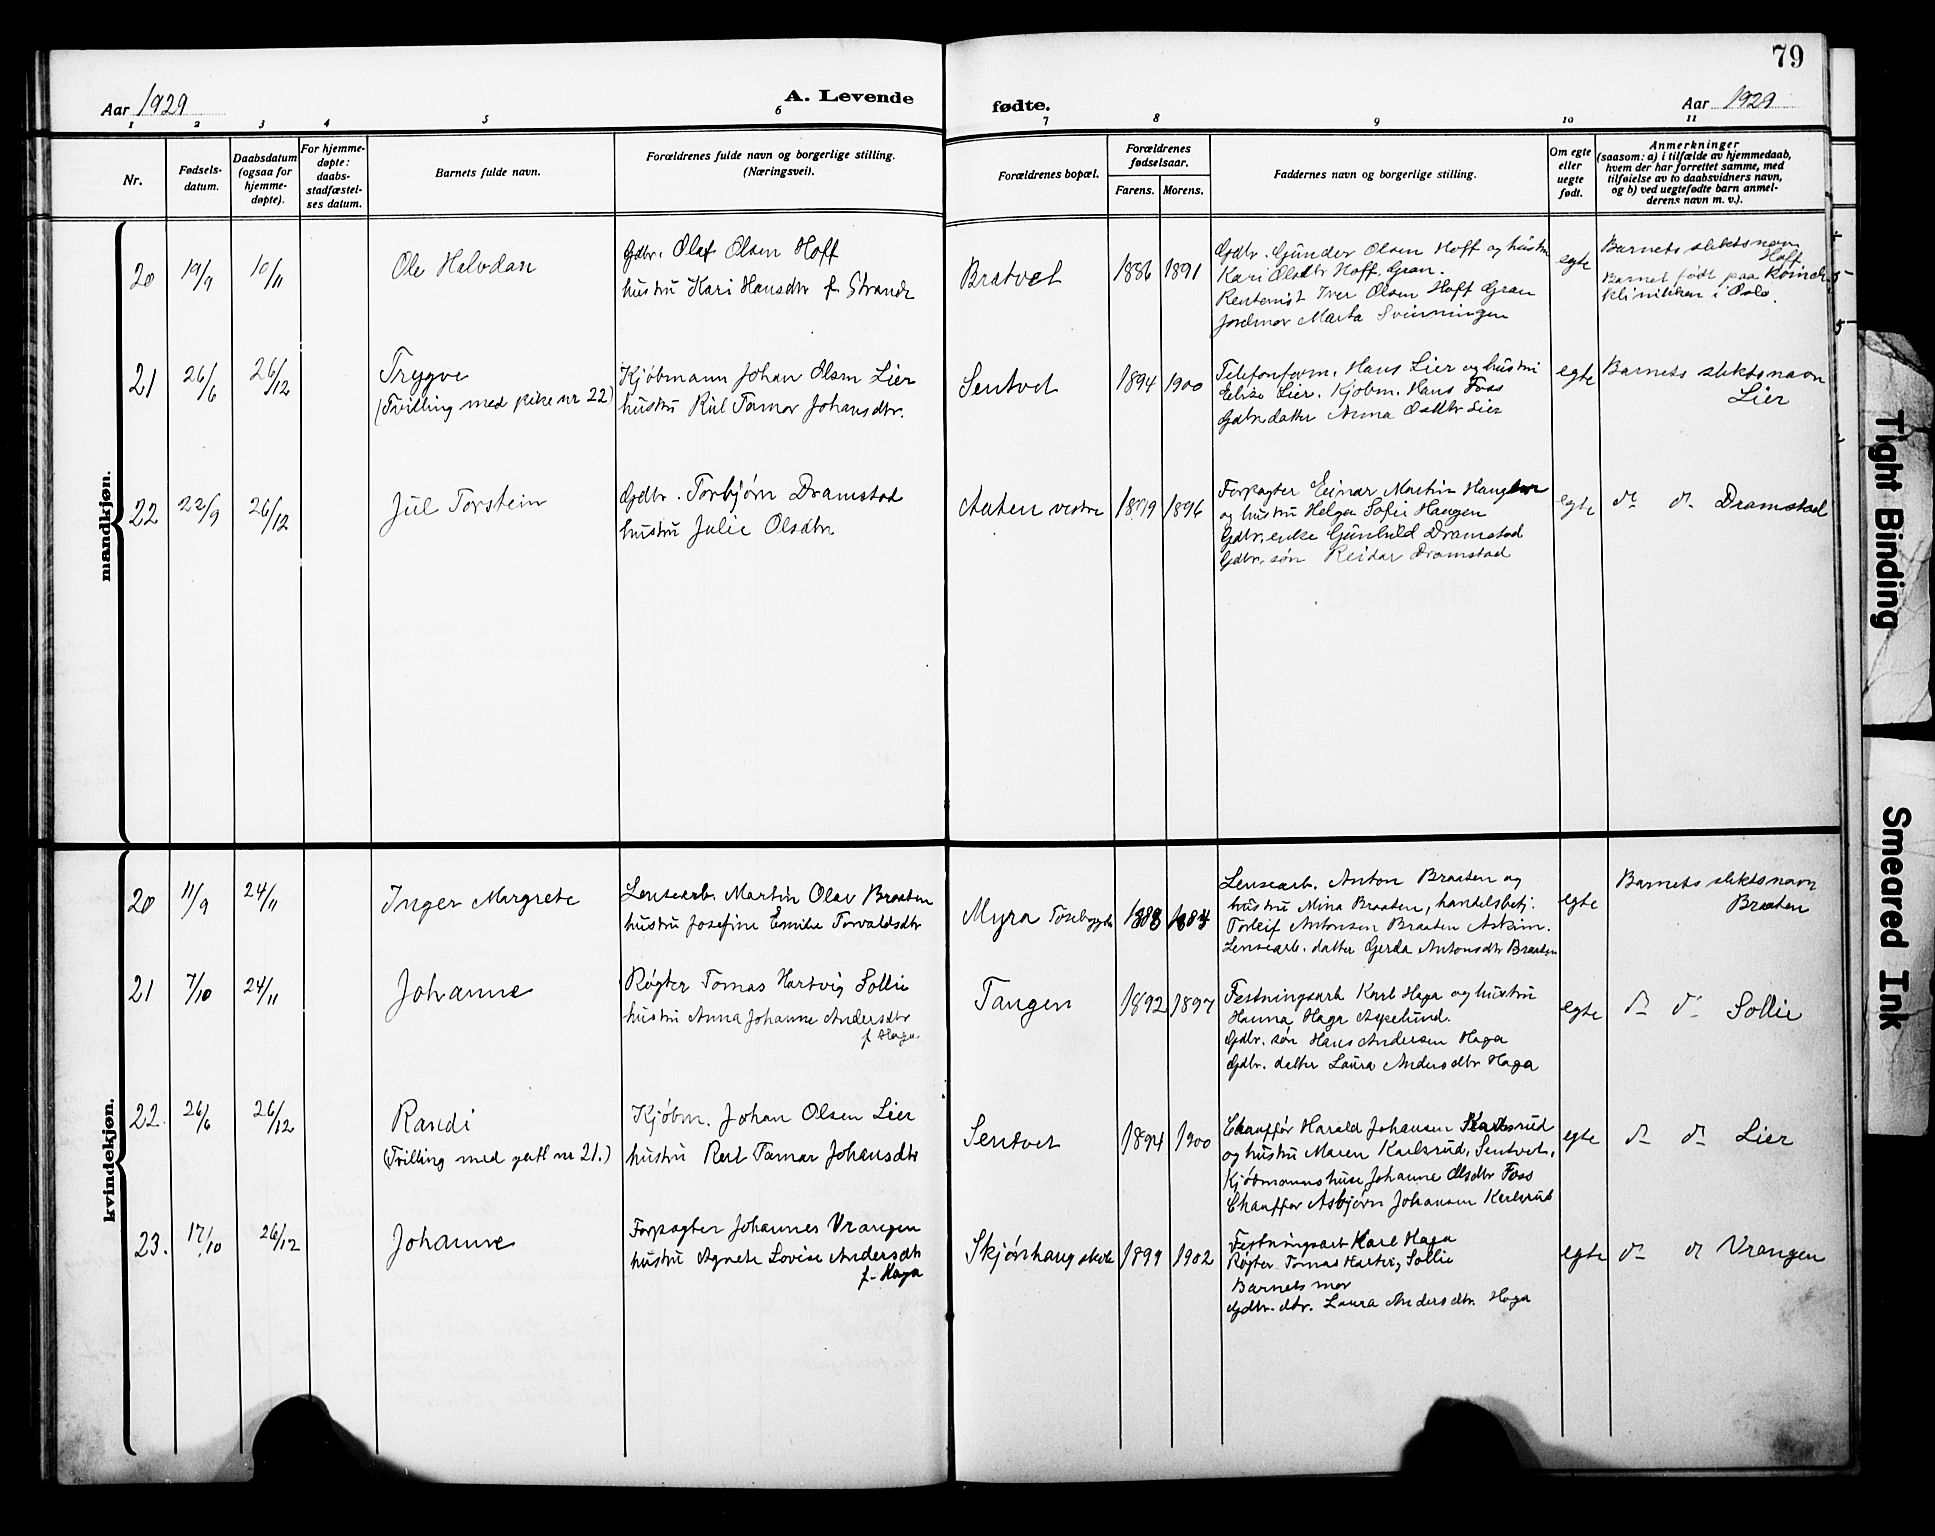 79
Aar 1929
A. Levende
fødte.
Aar 1929
1 2 3 4 5 6 7 8 9 10 11
Nr.
Fødsels-
datum.
Daabsdatum
(ogsaa for
hjemme-
døpte).
For hjemme-
døpte:
daabs-
stadfæstel-
ses datum.
Barnets fulde navn.
Forældrenes fulde navn og borgerlige stilling.
(Næringsvei).
Forældrenes bopæl.
Forældrenes
fødselsaar.
Farens. Morens.
Faddernes navn og borgerlige stilling.
Om egte
eller
uegte
født.
Anmerkninger
(saasom: a) i tilfælde av hjemmedaab,
hvem der har forrettet samme, med
tilføielse av to daabsvidners navn,
og b) ved uegtefødte barn anmel-
derens navn m. v.).
mandkjøn.
20
19/9
10/11
Ole Halvdan
Gdbr. Olaf Olsen Hoff
hustru Kari Hansdtr f. Strande
Bratvet
1886 1891
Gdbr. Gunder Olsen Hoff og hustru
Kari Olsdtr Hoff, Gran.
Rentenist Iver Olsen Hoff Gran
Jordmor Marta Svinningen
egte
Barnets slektsnavn
Hoff
Barnet født paa Kvinde
klinikken i Oslo.
21
26/6
26/12
Trygve
(Tvilling med pike nr 22)
Kjøbmann Johan Olsen Lier
hustru Rut Tamar Johansdtr.
Sentvet
1894 1900
Telefonform. Hans Lier og hustru
Elise Lier. Kjøbm. Hans Foss
Gdbr.datter Anna Olsdtr Lier
egte
Barnets slektsnavn
Lier
22
22/9
26/12
Jul Torstein
Gdbr. Torbjørn Dramstad
hustru Julie Olsdtr
vestre
1879 1896
Forpagter Einar Martin Haugen
og hustru Helga Sofie Haugen
Gdbr.enke Gunhild Dramstad
Gdbr. søn Reidar Dramstad
egte
do do Dramstad
kvindekjøn.
20
11/9
24/11
Inger Margrete
Lensearb. Martin Olav Braaten
hustru Josefine Emilie Torvaldsdtr
Myra
Lensearb. Anton Braaten og
hustru Mina Braaten, handelsbetj.
Torleif Antonsen Braaten Askim.
Lensearb. datter Gerda Antonsdtr Braaten
egte
Barnets slektsnavn
Braaten
21
7/10
24/11
Johanne
Røgter Tomas Hartvig Sollie
hustru Anna Johanne Andersdtr
f Haga.
Tangen
1892 1897
Festningsarb Karl Haga og hustru
Hanna Haga Aspelund.
Gdbr. søn Hans Andersen Haga
Gdbr. datter Laura Andersdtr Haga
egte
do do Sollie
22.
26/6
26/12
Randi
(Tvilling med gutt nr 21.)
Kjøbm. Johan Olsen Lier
hustru Rut Tamar Johansdtr
Sentvet
1894 1900
Chauffør Harald Johansen Karlsrud
og hustru Maren Karlsrud, Sentvet,
Kjøbmannshuse Johanne Olsdtr Foss
Chauffør Asbjørn Johansen Karlsrud
egte
do do Lier
23.
17/10
26/12
Johanne
Forpagter Johannes Vrangen
hustru Agnete Lovise Andersdtr
f. Haga
Skjønhaug skole
1899 1902
Festningsarb Karl Haga
Røgter Tomas Hartvig Sollie
Barnets mor
Gdbr. dtr. Laura Andersdtr. Haga
egte
do do Vrangen
Tight Binding
Smeared Ink